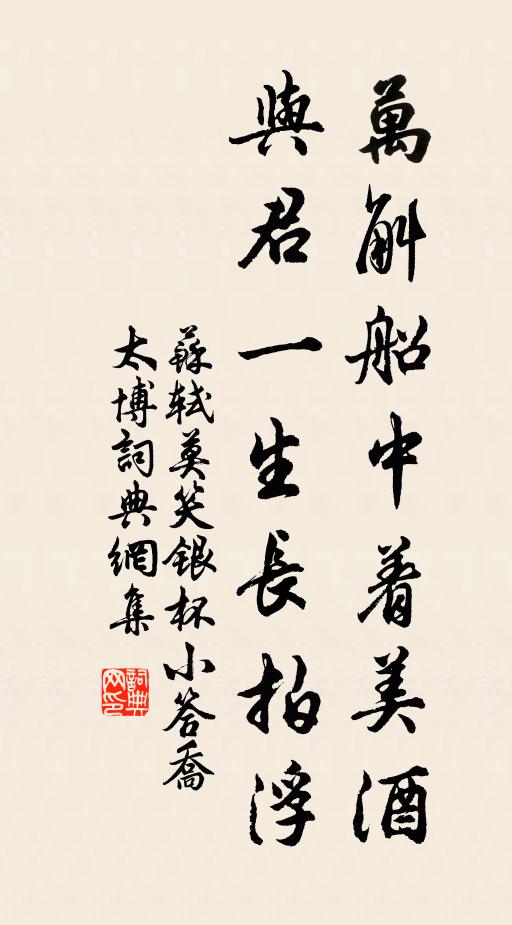 萬斛船中着美酒
與君一生長拍浮
蘇軾莫笑銀杯小答喬
太博詞典網集
詞典网印